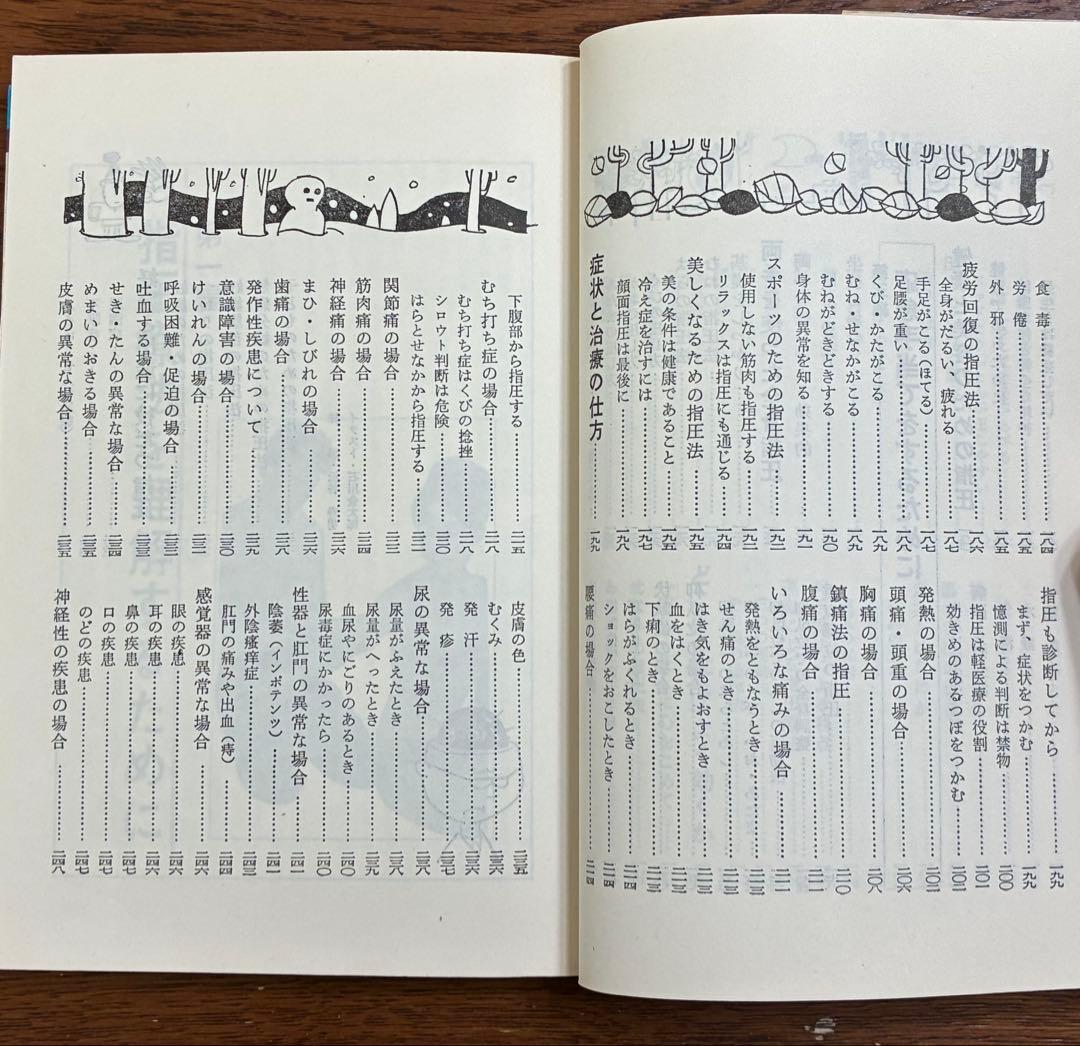 食毒……一八四
労倦……一八五
外邪……一八五
疲労回復の指圧法……一八六
全身がだるい、疲れる……一八七
手足がこる(ほてる)……一八七
足腰が重い……一八八
くび・かたがこる……一八八
むね・せなかがこる……一八九
むねがどきどきする……一九〇
身体の異常を知る……一九一
スポーツのための指圧法……一九二
使用しない筋肉も指圧する……一九二
リラックスは指圧にも通じる……一九四
美しくなるための指圧法……一九五
美の条件は健康であること……一九五
冷え症を治すには……一九七
顔面指圧は最後に……一九八
症状と治療の仕方……一九九
指圧も診断してから……一九九
まず、症状をつかむ……一九九
憶測による判断は禁物……二〇〇
指圧は軽医療の役割……二〇一
効きめのあるつぼをつかむ……二〇二
発熱の場合……二〇二
頭痛・頭重の場合……二〇六
胸痛の場合……二〇八
鎮痛法の指圧……二一〇
腹痛の場合……二一一
いろいろな痛みの場合……二一一
発熱をともなうとき……二一二
せん痛のとき……二一二
はき気をもよおすとき……二一二
血をはくとき……二一三
下痢のとき……二一三
はらがふくれるとき……二一四
ショックをおこしたとき……二一四
腰痛の場合……二一四
下腹部から指圧する……二一五
むち打ち症の場合……二一八
むち打ち症はくびの捻挫……二一八
シロウト判断は危険……二二〇
はらとせなかから指圧する……二二一
関節痛の場合……二二二
筋肉痛の場合……二二四
神経痛の場合……二二六
まひ・しびれの場合……二二六
歯痛の場合……二二八
発作性疾患について……二二九
意識障害の場合……二三〇
けいれんの場合……二三一
呼吸困難・促迫の場合……二三二
吐血する場合……二三三
せき・たんの異常な場合……二三四
めまいのおきる場合……二三五
皮膚の異常な場合……二三五
皮膚の色……二三五
むくみ……二三六
発汗……二三六
発疹……二三七
尿の異常な場合……二三八
尿量がふえたとき……二三八
尿量がへったとき……二三九
血尿やにごりのあるとき……二四〇
尿毒症にかかったら……二四〇
性器と肛門の異常な場合……二四一
陰萎(インポテンツ)……二四一
外陰瘙痒症……二四三
肛門の痛みや出血(痔)……二四四
感覚器の異常な場合……二四六
眼の疾患……二四六
耳の疾患……二四六
鼻の疾患……二四七
口の疾患……二四七
のどの疾患……二四七
神経性の疾患の場合……二四八